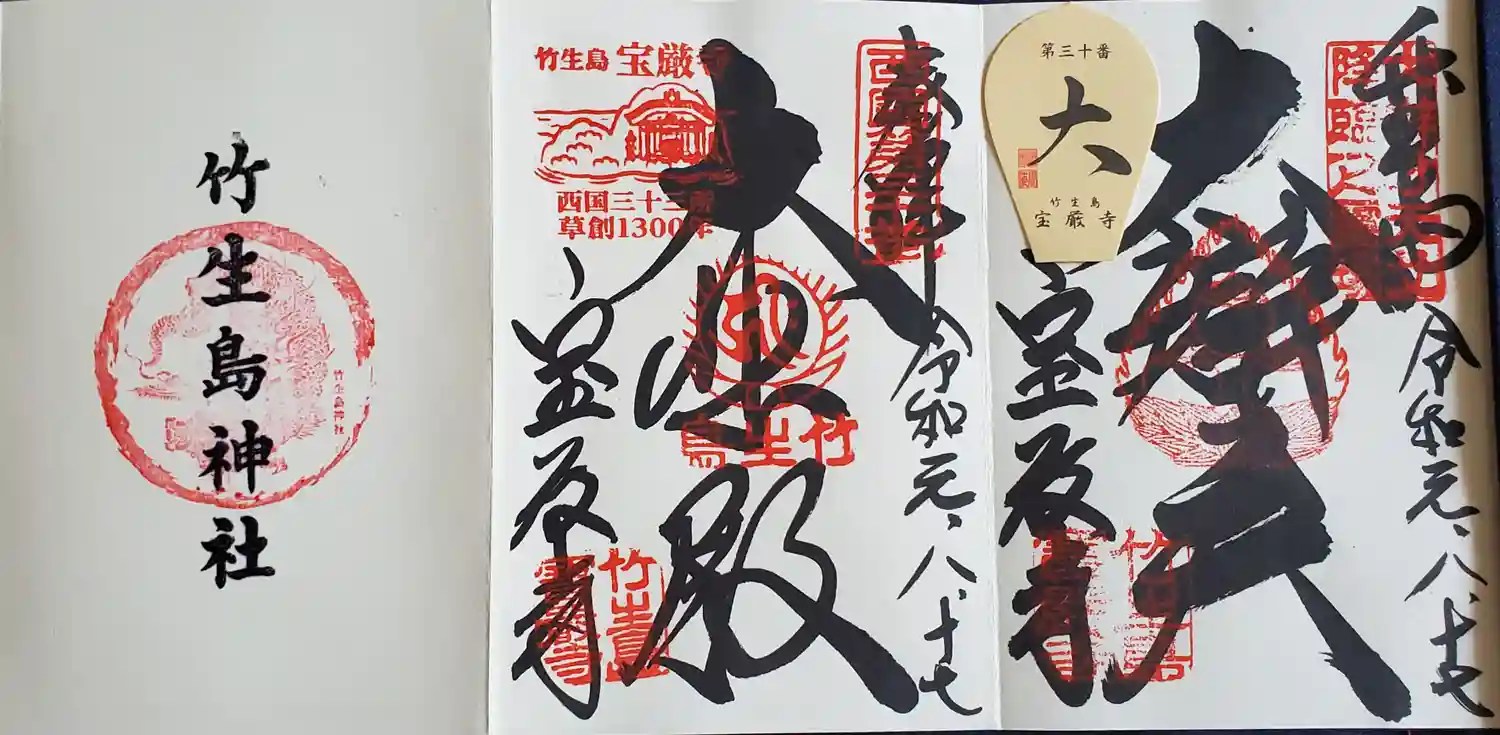 竹生島神社
竹生島神社
竹生島 宝厳寺
西国三十三所
草創1300年
奉拝
令和元、八、十七
大悲殿
竹生島
宝厳寺
竹生島
第三十番
大
竹生島
宝厳寺
令和元、八、十七
大辨天
宝厳寺
竹生島